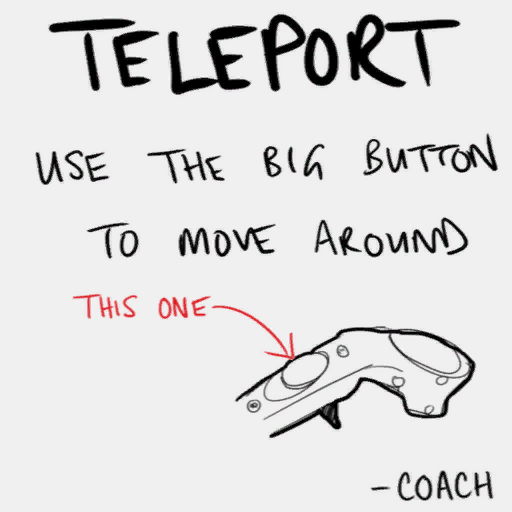 TELEPORT
USE THE BIG BUTTON
TO MOVE AROUND
THIS ONE
-COACH